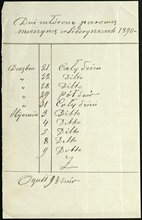 Dni młócone parową
maszyną w Dobrzyniewie 1890
Grudzień 21 Cały dzień
" 22 Ditto
" 28 Ditto
" 29 Pół dnia
" 31 Cały dzień
Styczeń 3 Ditto
4 Ditto
5 Ditto
8 Ditto
9 Ditto
Ogół 9½ dnia